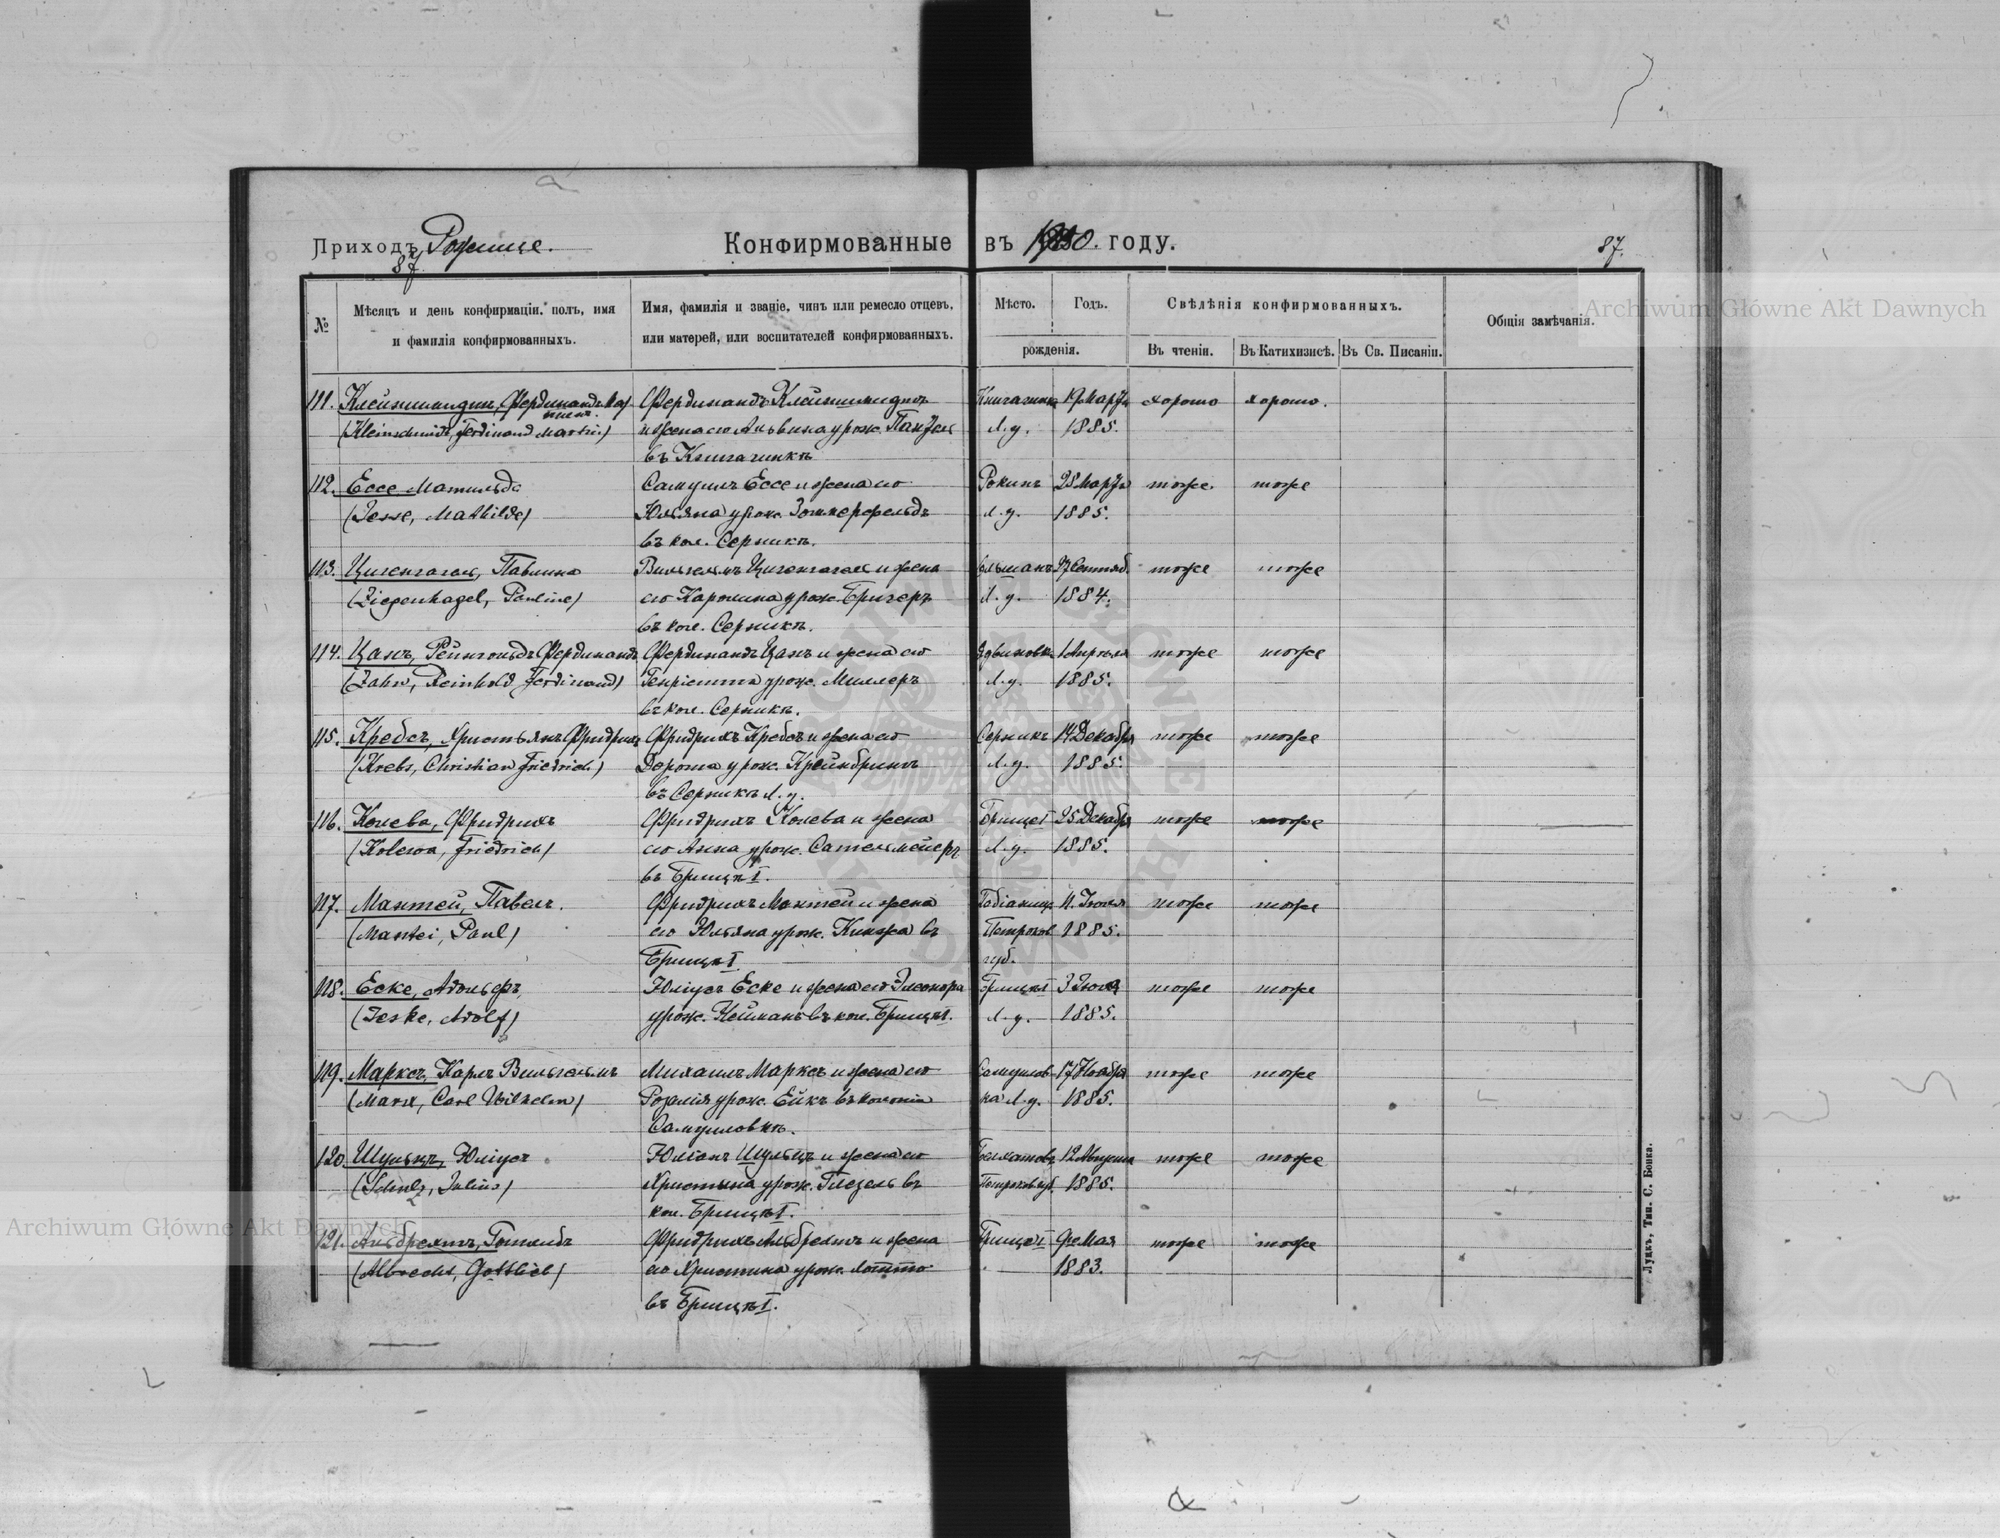 Приходъ Рожище.
Конфирмованные въ 1900. году.
87
87.
№
Мѣсяцъ и день конфирмаціи, полъ, имя
и фамилія конфирмованныхъ.
Имя, фамилія и званіе, чинъ или ремесло отцевъ,
или матерей, или воспитателей конфирмованныхъ.
Мѣсто.
Годъ.
рожденія.
Свѣлѣнія конфирмованныхъ.
Въ чтеніи.
Въ Катихизисѣ.
Въ Св. Писаніи.
Общія замѣчанія.
111. Клейншмидтъ, Фердинандъ Мар
тинъ. Фердинандъ Клейншмидтъ Княгининъ 19 Марта хорошо хорошо.
(Kleinschmidt, Ferdinand Martin) и жена его Альвина урож. Панзеи Л. у. 1885.
въ Княгининкѣ
112. Ессе Матильда Самуилъ Ессе и жена его Рокинъ 28 Марта тоже. тоже
(Jesse, Mathilde) Юльяна урож. Зоммерфельдъ Л. у. 1885.
въ кол. Серникъ.
113. Цигенгагель, Павлина Вильгельмъ Цигенгагель и жена 27 Сентяб. тоже тоже
(Ziegenhagel, Pauline) его Каролина урож. Бригеръ Л. у. 1884.
въ кол. Серникъ.
114. Цанъ, Рейнгольдъ Фердинандъ Фердинандъ Цанъ и жена его 1 Апрѣля тоже тоже
(Zahn, Reinhold Ferdinand) Генріетта урож. Миллеръ Л. у. 1885.
въ кол. Серникъ.
115. Кребсъ, Христьянъ Фридрихъ Фридрихъ Кребсъ и жена его Серникъ 14 Декабря тоже тоже
(Krebs, Christian Friedrich) Дорота урож. Крейнбрингъ Л. у. 1885.
въ Серникъ Л. у.
116. Колева, Фридрихъ Фридрихъ Колева и жена Брище I 25 Декабря тоже тоже
(Kolewa, Friedrich) его Анна урож. Сательмейеръ Л. у. 1885.
въ Брищѣ I.
117. Мантей, Павелъ. Фридрихъ Мантей и жена Пабіаниц. 11. Іюля тоже тоже
(Mantei, Paul) его Юльяна урож. Кинжа въ Петроков 1885.
Брищѣ I губ.
118. Еске, Адольфъ, Юліусъ Еске и жена его Элеонора Брищѣ I 3 Іюля тоже тоже
(Jeske, Adolf) урож. Нейманъ въ кол. Брищѣ I. Л. у. 1885.
119. Марксъ, Карлъ Вильгельмъ Михаилъ Марксъ и жена его Самуилов 17 Ноября тоже тоже
(Marx, Carl Wilhelm) Розалія урож. Ейкъ въ колоніи ка Л. у. 1885.
Самуиловкѣ.
120. Шульцъ, Юліусъ Юліанъ Шульцъ и жена его Белхатовъ 12 Августа тоже тоже
(Schulz, Julius) Христьна урож. Глезель въ Петроков губ. 1885.
кол. Брищѣ I.
121. Альбрехтъ, Готлибъ Фридрихъ Альбрехтъ и жена Брище I 9го Мая тоже тоже
(Albrecht, Gottlieb) его Христина урож. Лотто 1883.
въ Брищѣ I.
Луцкъ, Тип. С. Бонка.
Archiwum Główne Akt Dawnych
Archiwum Główne Akt Dawnych
ARCHIWUM GŁÓWNE AKT DAWNYCH